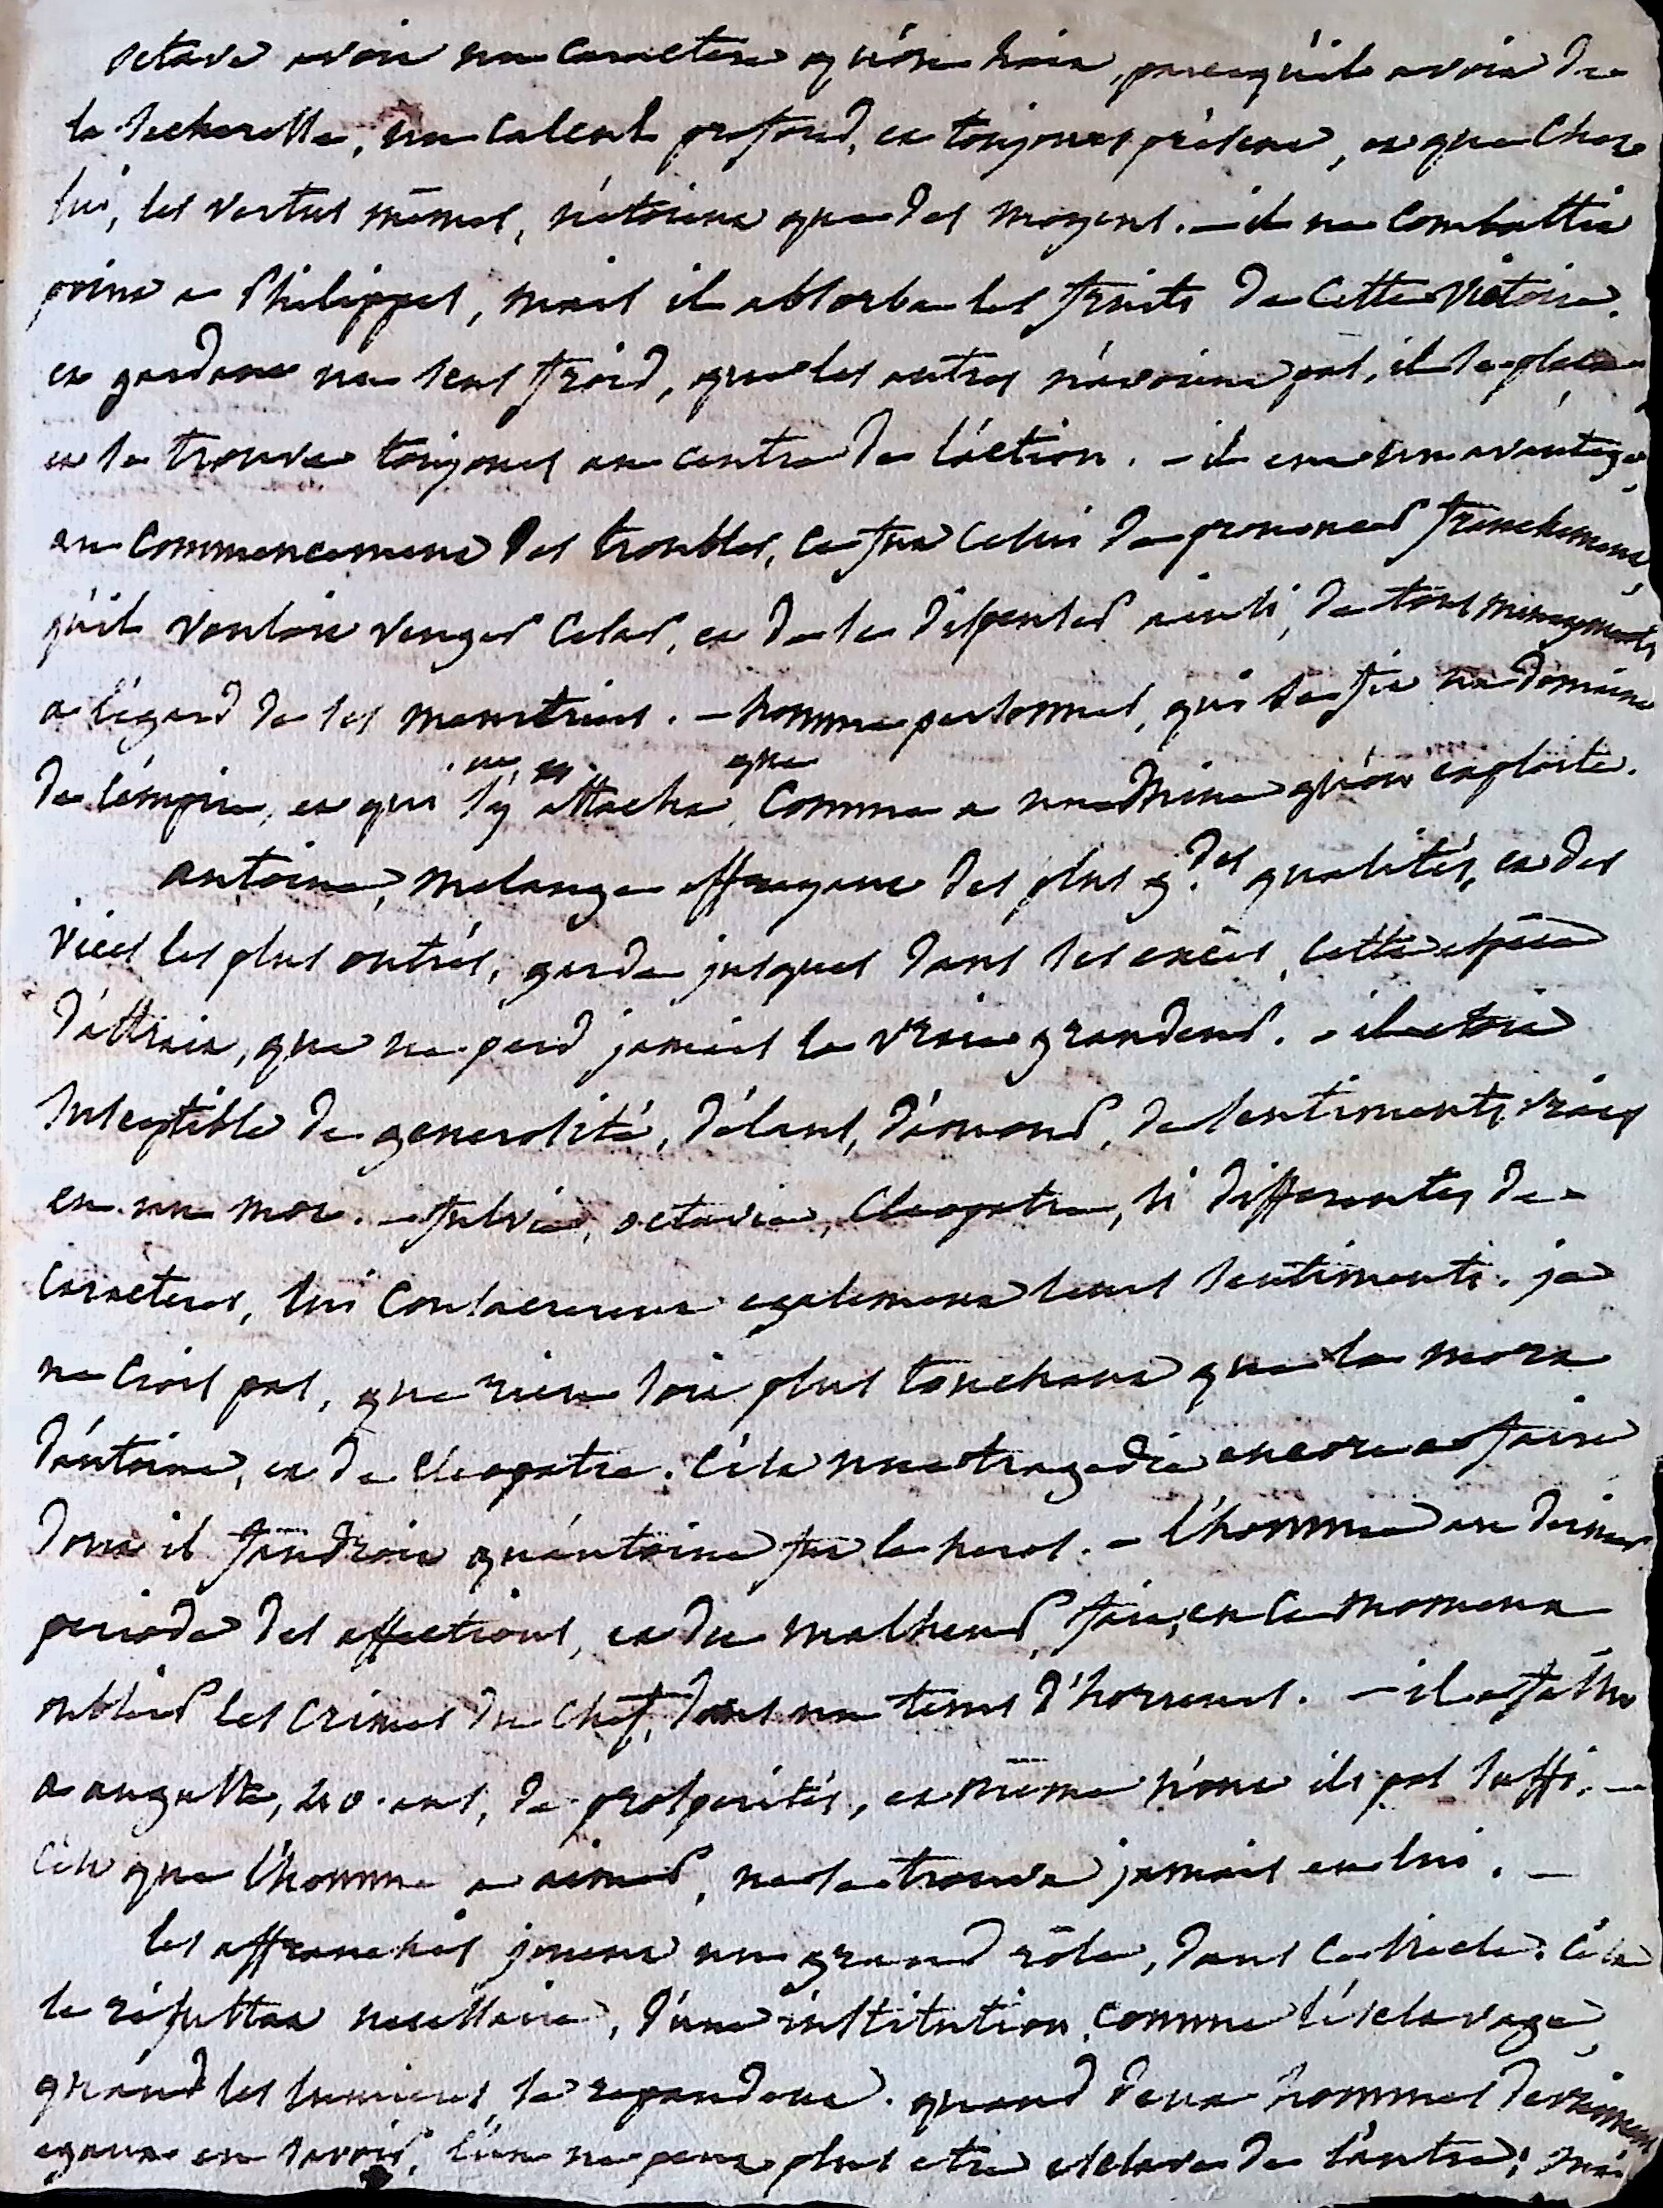 octave avoit un caractere qu'on hait, parcequ'il avoit de
la secheresse, un calcul profond, et toujours présent, et que chez
lui, les vertus mêmes, n'étoient que des moyens. — il ne combattit
point a Philippes, mais il absorba les fruits de cette victoire.
et gardant un sens froid, que les autres n'avoient pas, il se plaça
et se trouva toujours au centre de l'action. — il eut un avantage,
au commencement des troubles, ce fut celui de prononcer franchement,
qu'il vouloit venger Cesar, et de se dispenser ainsi, de tous menagements
a l'égard de ses meurtriers. — homme personnel, qui se fit un domaine
de l'empire, et qui s'y attacha, comme a une mine qu'on exploite.
antoine, melange effrayant des plus g.des qualités, et des
vices les plus outrés, garda jusques dans ses excès, cette espèce
d'attrait, que ne perd jamais la vraie grandeur. — il etoit
susceptible de generosité, d'élans, d'amour, de sentiments vrais
en un mot. — fulvie, octavie, Cleopatre, si differentes de
caractères, lui consacrerent egalement leurs sentiments. je
ne crois pas, que rien soit plus touchant que la mort
d'antoine, et de cleopatre. C'est une tragedie encore a faire
dont il faudroit qu'antoine fut le heros. — l'homme au dernier
periode des affections, et du malheur, fait, en ce moment
oublier les crimes du chef, dans un tems d'horreurs. — il a fallu
a auguste, 40. ans, de prosperités, et même n'ont ils pas suffi. —
c'est que l'homme a aimer, ne se trouva jamais en lui. —
les affranchis jouent un grand rôle, dans ce siecle. C'est
le résultat necessaire, d'une institution, comme l'ésclavage,
quand les lumieres se repandent. quand deux hommes deviennent
egaux en savoir, l'un ne peut plus etre esclave de l'autre; mais